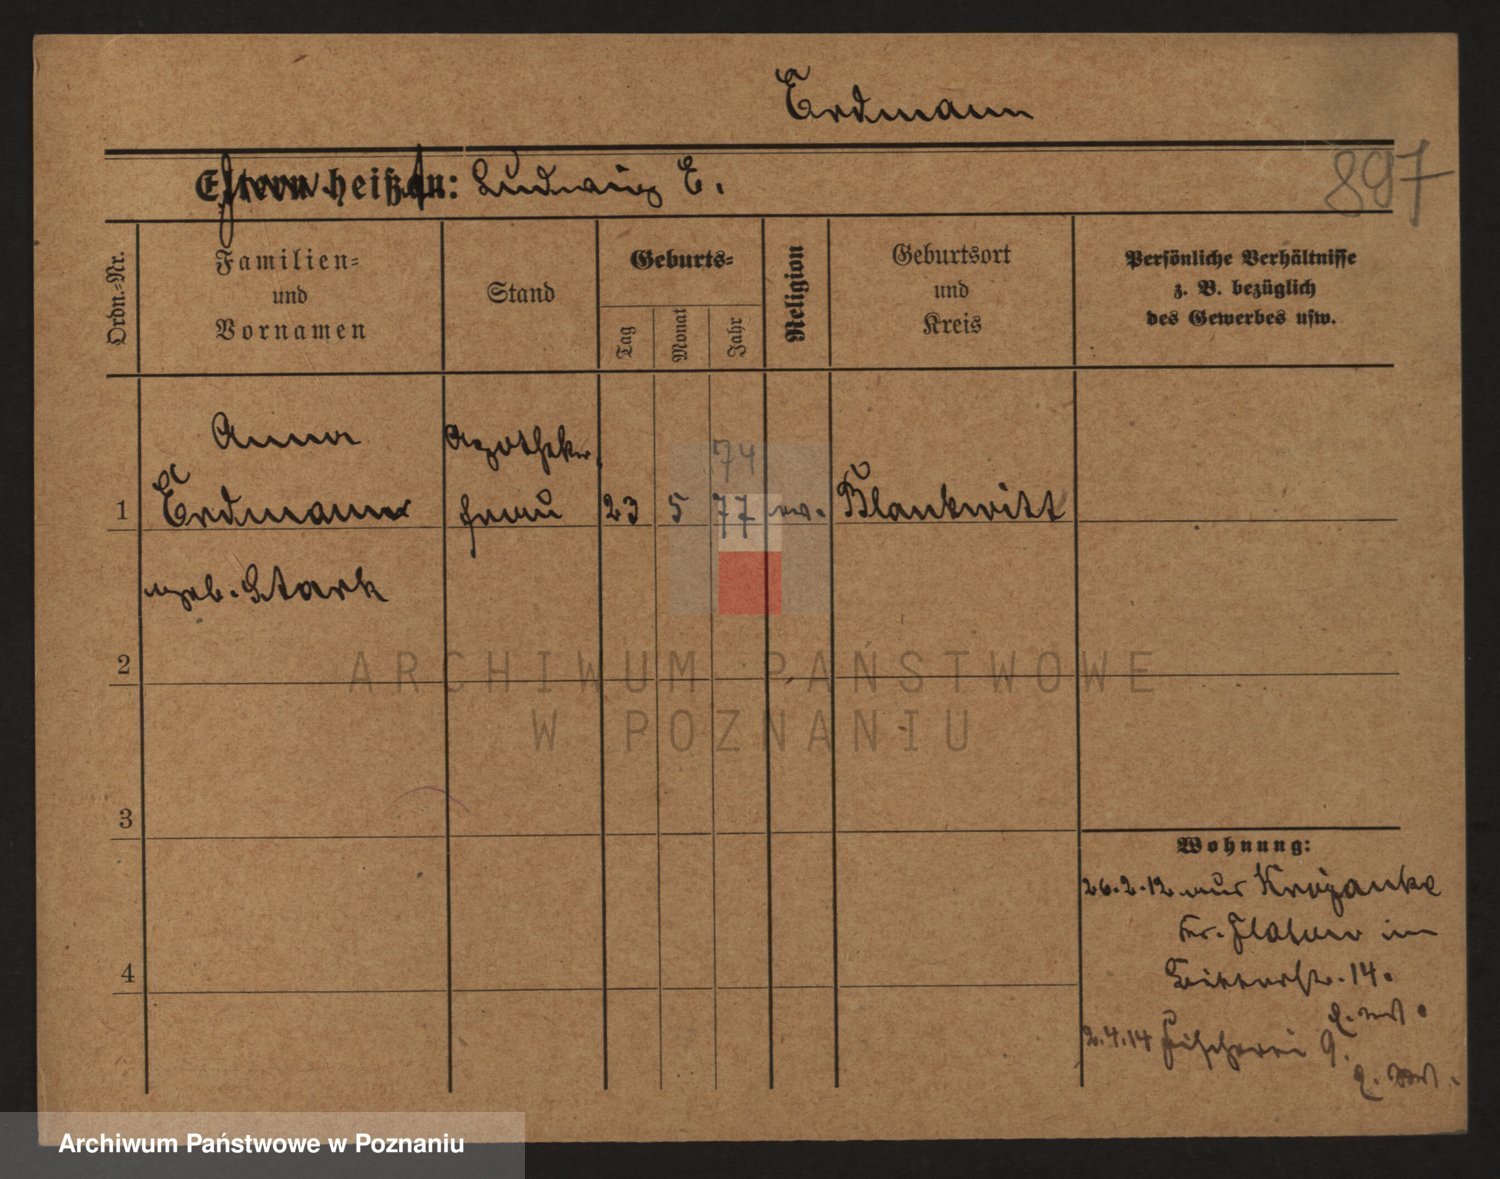 Erdmann
897
Eltern heißen: Ludwig E.
Ordn.-Nr.
Familien-
und
Vornamen
Stand
Geburts-
Tag
Monat
Jahr
Religion
Geburtsort
und
Kreis
Persönliche Verhältnisse
z. B. bezüglich
des Gewerbes usw.
Anna Apotheker
74
1 Erdmann frau 23 5 77 ev. Blankwitt
geb. Stark
2
ARCHIWUM PAŃSTWOWE
W POZNANIU
3
Wohnung:
26.2.12 aus Krojanke
Kr. Flatow in
Ritterstr. 14.
4
2.4.14 Fischerei 9.
Archiwum Państwowe w Poznaniu